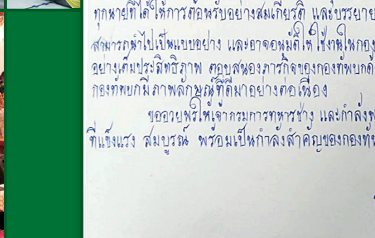 ทุกนายที่ได้ให้การต้อนรับอย่างสมเกียรติ และบรรยาย
สามารถนำไปเป็นแบบอย่าง และอาจอนุมัติให้ใช้งานในกอง
อย่างเต็มประสิทธิภาพ ตอบสนองภารกิจของกองทัพบกด้
กองทัพบกมีภาพลักษณ์ที่ดีมาอย่างต่อเนื่อง
ขออวยพรให้เจ้ากรมการทหารช่าง และกำลังพ
ที่แข็งแรง สมบูรณ์ พร้อมเป็นกำลังสำคัญของกองทัพ